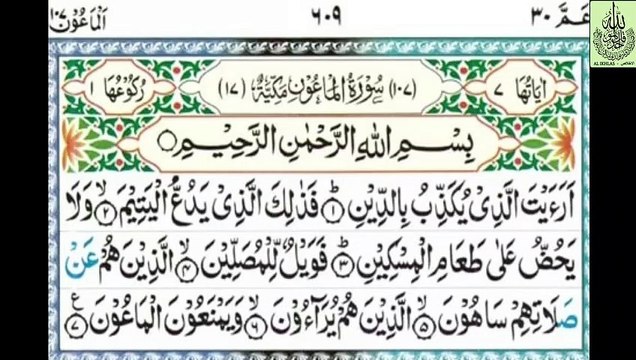 عَمَّ ٣٠ ٦٠٩ اَلْمَاعُوْن ١٠٧
AL IKHLAS
اٰيَاتُهَا ٧ (١٠٧) سُوْرَةُ الْمَاعُوْنِ مَكِّيَّةٌ (١٧) رُكُوْعُهَا ١
بِسْمِ اللّٰهِ الرَّحْمٰنِ الرَّحِيْمِ
اَرَءَيْتَ الَّذِىْ يُكَذِّبُ بِالدِّيْنِ ؕ﴿١﴾ فَذٰلِكَ الَّذِىْ يَدُعُّ الْيَتِيْمَ ۙ﴿٢﴾ وَلَا
يَحُضُّ عَلٰى طَعَامِ الْمِسْكِيْنِ ؕ﴿٣﴾ فَوَيْلٌ لِّلْمُصَلِّيْنَ ۙ﴿٤﴾ الَّذِيْنَ هُمْ عَنْ
صَلَاتِهِمْ سَاهُوْنَ ۙ﴿٥﴾ الَّذِيْنَ هُمْ يُرَآءُوْنَ ۙ﴿٦﴾ وَيَمْنَعُوْنَ الْمَاعُوْنَ ﴿٧﴾ ع